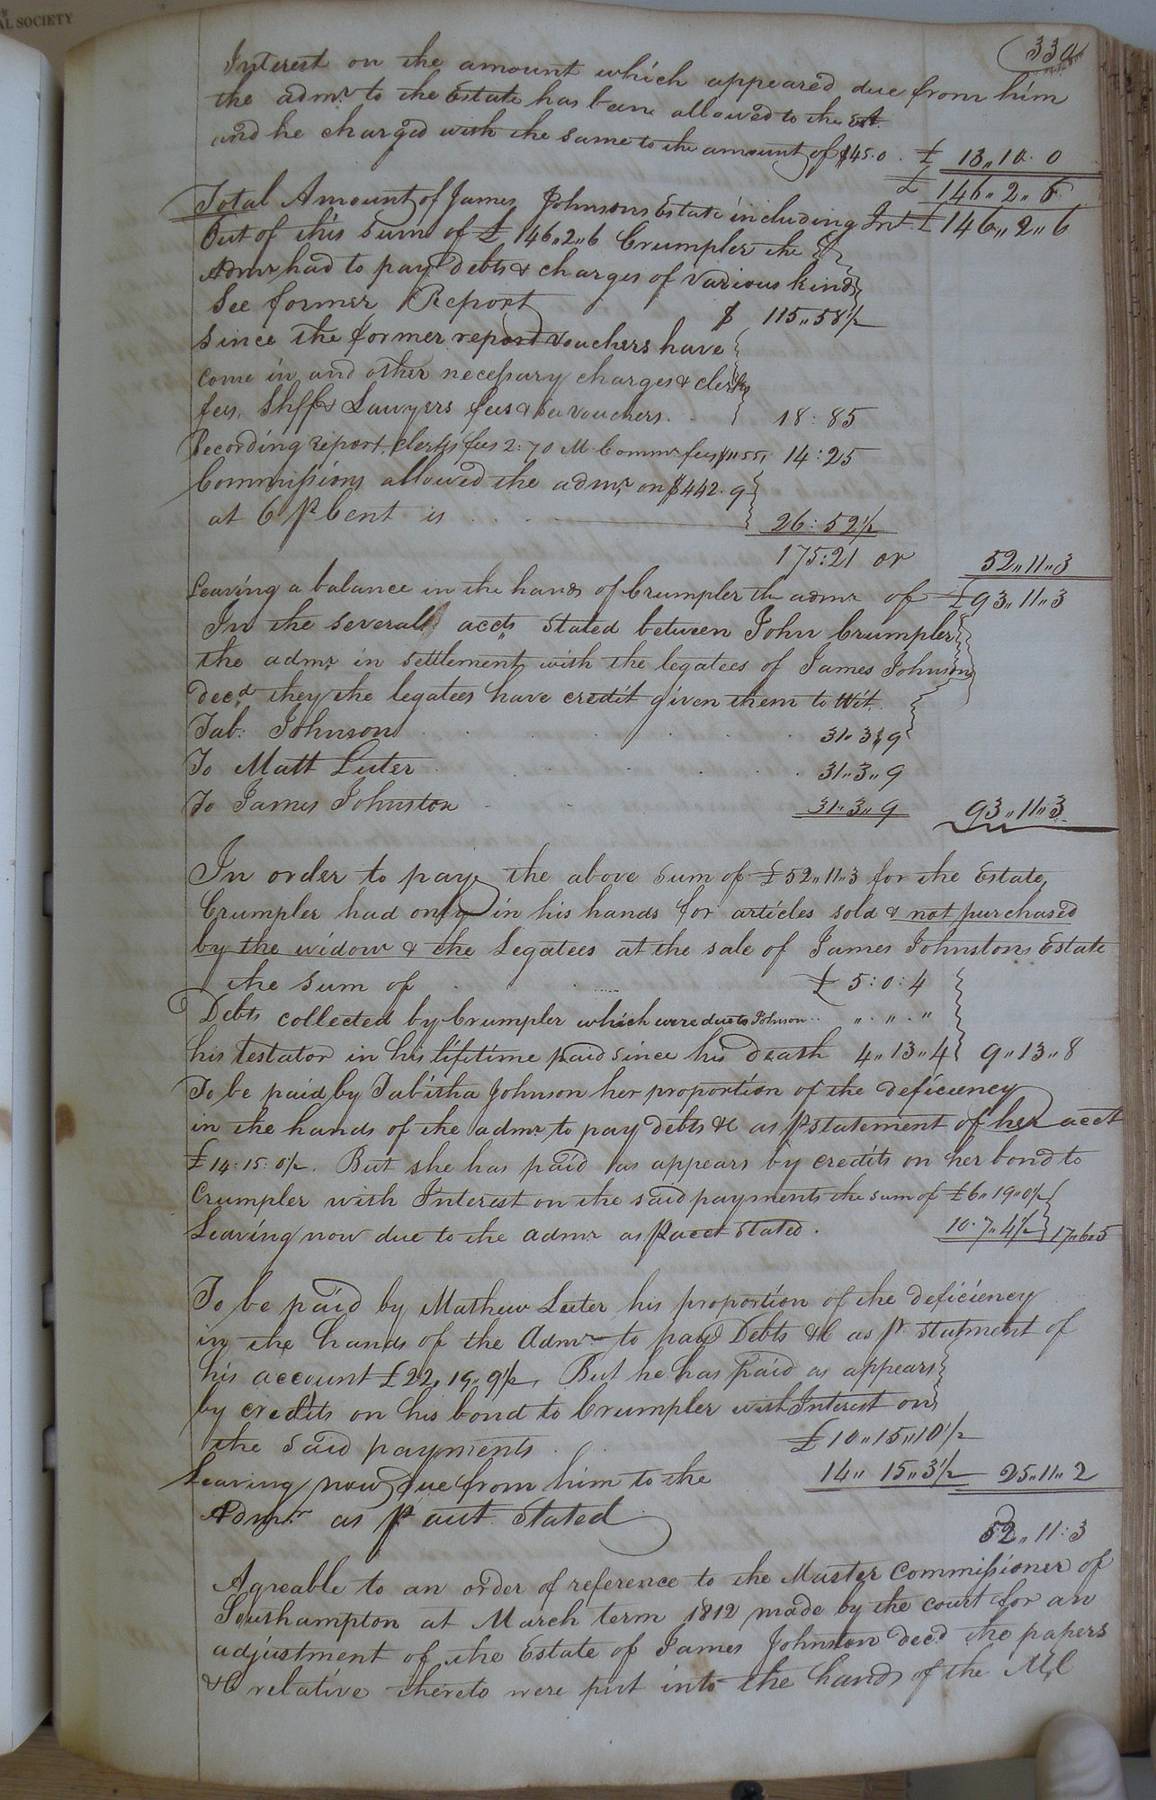 AL SOCIETY
334
Interest on the amount which appeared due from him
the admr. to the Estate has been allowed to the Est.
and he charged with the same to the amount of $45.0. £ 13,,10.0
£ 146,,2,,6
Total Amount of James Johnsons Estate including Int. £146,,2,,6
Out of this sum of £ 146,,2,,6 Crumpler the
Admr had to pay debts & charges of various kinds
See former Report $ 115,,58½
Since the former report vouchers have
come in and other necessary charges & clerks
fees, Shffs Lawyers fees & see vouchers. 18:85
Recording report, clerks fees 2:70 M Commr fees $11.55, 14:25
Commissions allowed the admr. on $442.9
at 6 P Cent is 26:52½
175:21 or 52,,11,,3
Leaving a balance in the hands of Crumpler the admr of £93,,11,,3
In the severall accts stated between John Crumpler
the admr. in settlement with the legatees of James Johnson
Decd. they the legatees have credit given them to Wit.
Tab: Johnson 31,,3,,9
To Matt Luter 31,,3,,9
To James Johnston 31,,3,,9 93,,11,,3
In order to pay the above sum of £52,,11,,3 for the Estate,
Crumpler had only in his hands for articles sold & not purchased
by the widow & the Legatees at the sale of James Johnstons Estate
the sum of £ 5:0:4
Debts collected by Crumpler which were due to Johnson .. ,, . ,, . ,,
his testator in his lifetime paid since his death 4,,13,,4 9,,13,,8
To be paid by Tabitha Johnson her proportion of the deficiency
in the hands of the admr. to pay debts &c as P statement of her acct
£14:15:0½. But she has paid as appears by credits on her bond to
Crumpler with Interest on the said payments the sum of £6,,19,,0½
Leaving now due to the admr as P acct stated. 10,,7,,4½ 17,,6,,5
To be paid by Mathew Luter his proportion of the deficiency
in the hands of the Admr to pay Debts &c as Pr statment of
his account £22,,19,,9½. But he has paid as appears
by credits on his bond to Crumpler with Interest on
the said payments £10,,15,,10½
Leaving now due from him to the 14,,15,,3½ 25,,11,,2
Admr. as P acct. stated 52,,11:3
Agreable to an order of reference to the Master Commissioner of
Southampton at March term 1812 made by the court for an
adjustment of the Estate of James Johnston decd the papers
&C relative thereto were put into the hands of the M,C